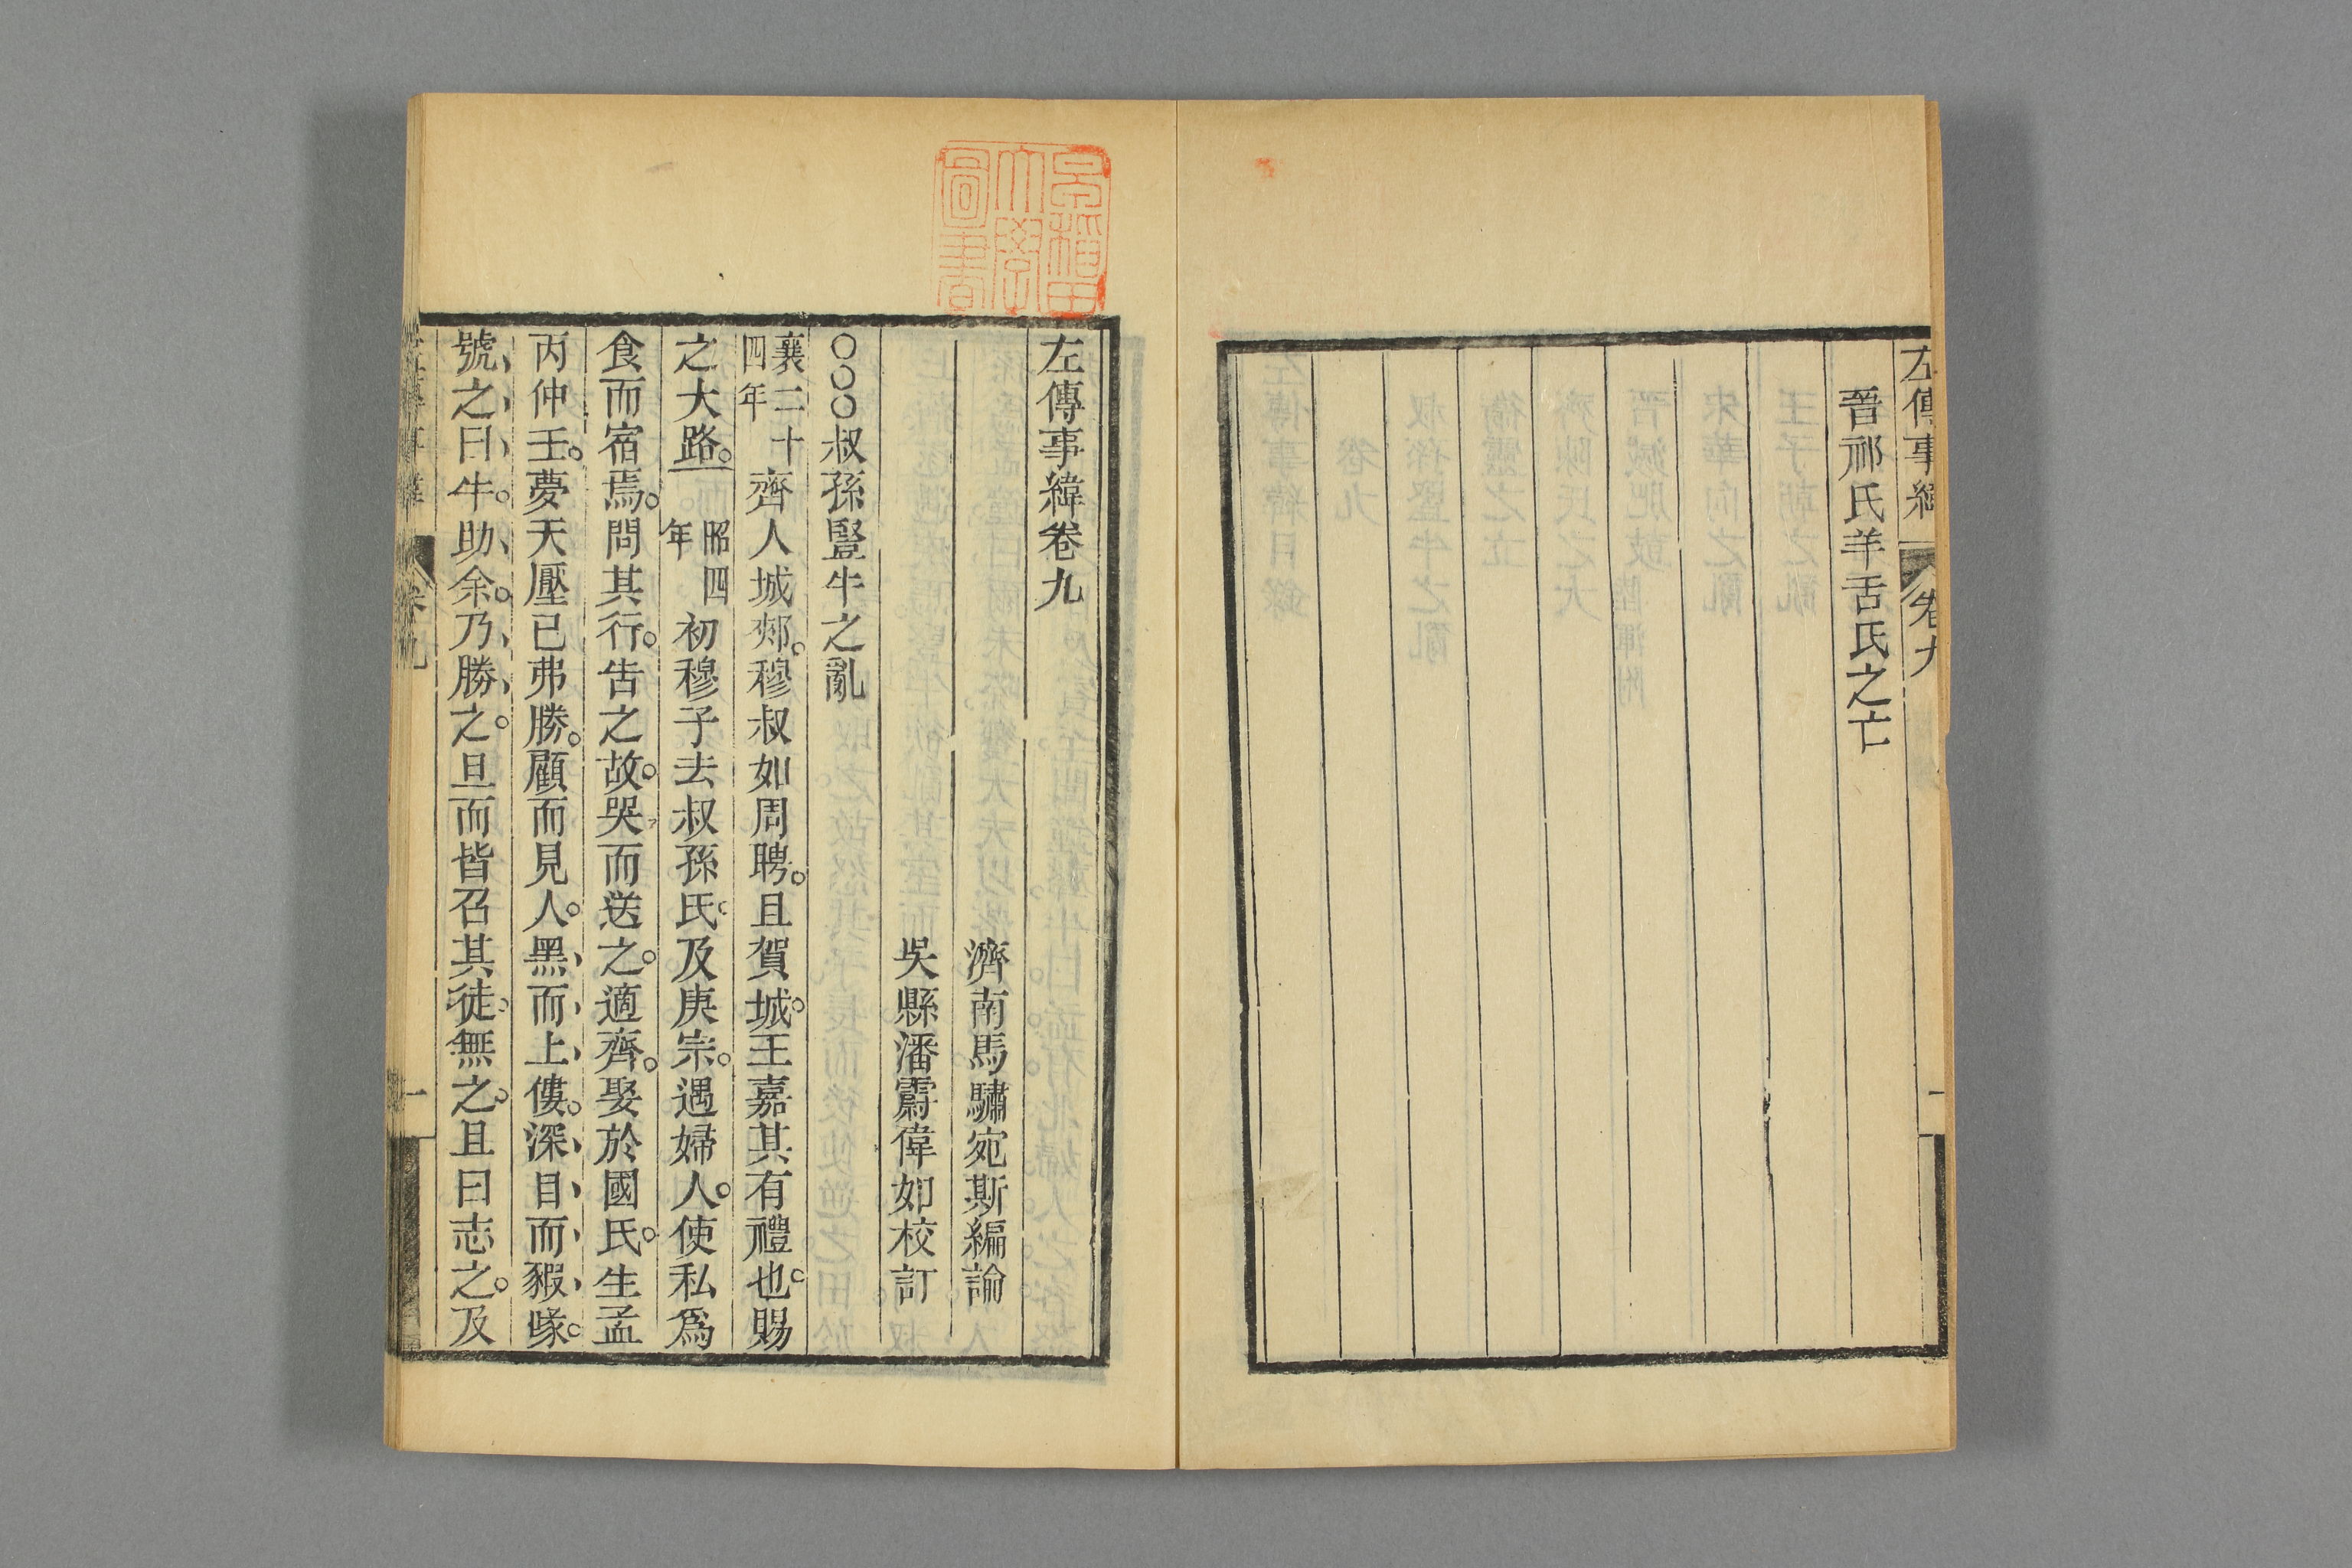 左傳事緯
卷九
一
晉祁氏羊舌氏之亡
早稻田
大學
圖書
左傳事緯卷九
濟南馬驌宛斯編論
吳縣潘霨偉如校訂
○○○叔孫豎牛之亂
襄二十四年齊人城郟。穆叔如周聘。且賀城。王嘉其有禮也。賜
之大路。昭四年初穆子去叔孫氏。及庚宗。遇婦人。使私爲
食而宿焉。問其行。告之故。哭而送之。適齊。娶於國氏。生孟
丙仲壬。夢天壓已弗勝。顧而見人。黑、而、上、僂。深、目、而、豭、喙。
號、之、曰、牛。助、余。乃、勝、之。旦而皆召其徒。無之。且曰志之。及
卷九
一